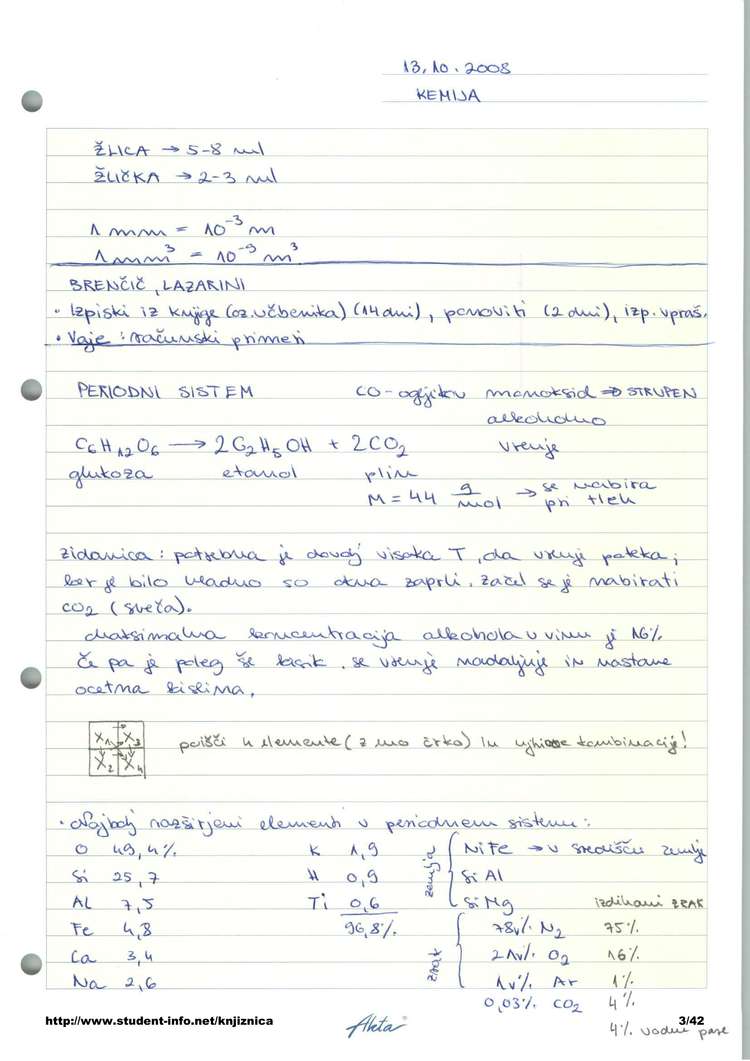 13.10.2008
KEMIJA
ŽLICA → 5-8 ml
ŽLIČKA → 2-3 ml
1 mm = 10⁻³ m
1 mm³ = 10⁻⁹ m³
BRENČIČ, LAZARINI
• Izpiski iz knjige (oz. učbenika) (14 dni), ponoviti (2 dni), izp. vpraš.
• Vaje : računski primeri
PERIODNI SISTEM CO-ogljikov monoksid ⇒ STRUPEN
alkoholno
C6H12O6 → 2C2H5OH + 2CO2 vrenje
glukoza etanol plin
M = 44 g/mol → se nabira pri tleh
zidanica : potrebna je dovolj visoka T, da vrenje poteka;
ker je bilo hladno so okna zaprli, začel se je nabirati
CO2 (sveča).
Maksimalna koncentracija alkohola v vinu je 16%.
Če pa je poleg še kisik, se vrenje nadaljuje in nastane
ocetna kislina.
X1 X3
X2 X4
poišči 4 elemente (z eno črko) in njihove kombinacije!
• Najbolj razširjeni elementi v periodnem sistemu :
O 49,4% K 1,9 zemlja NiFe → v središču zemlje
Si 25,7 H 0,9 SiAl
Al 7,5 Ti 0,6 SiMg izdihani ZRAK
Fe 4,8 96,8% zrak 78v% N2 75%
Ca 3,4 21v% O2 16%
Na 2,6 1v% Ar 1%
0,03% CO2 4%
4% vodne pare
http://www.student-info.net/knjiznica
Aleta
3/42